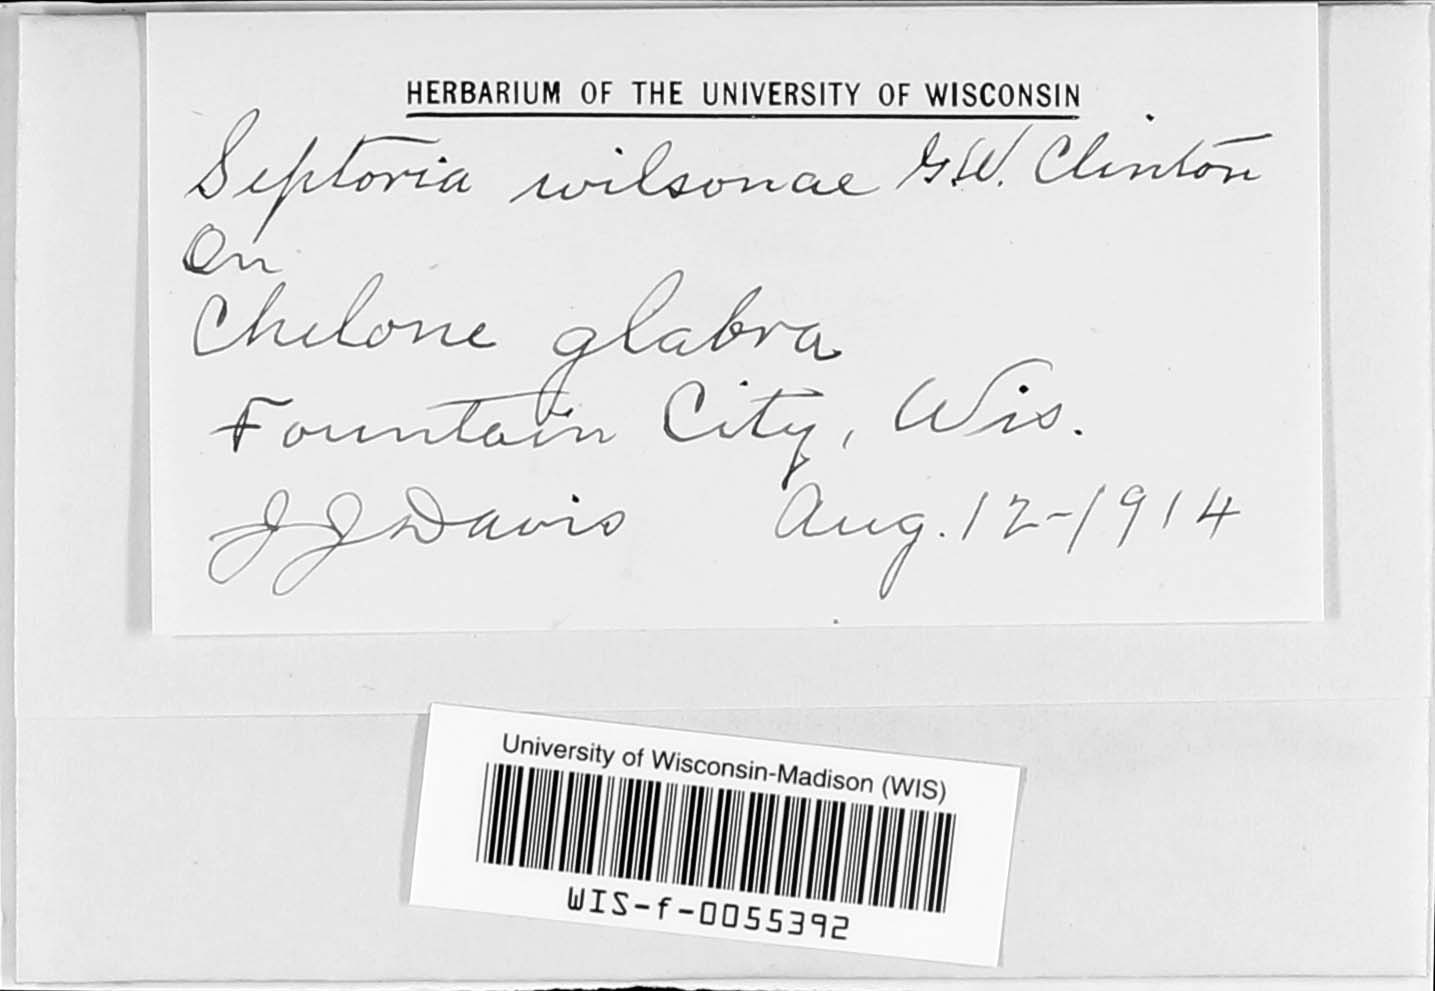 HERBARIUM OF THE UNIVERSITY OF WISCONSIN
Septoria wilsonae G.W. Clinton
On
Chelone glabra
Fountain City, Wis.
J J Davis Aug. 12-1914
University of Wisconsin-Madison (WIS)
WIS-f-0055392